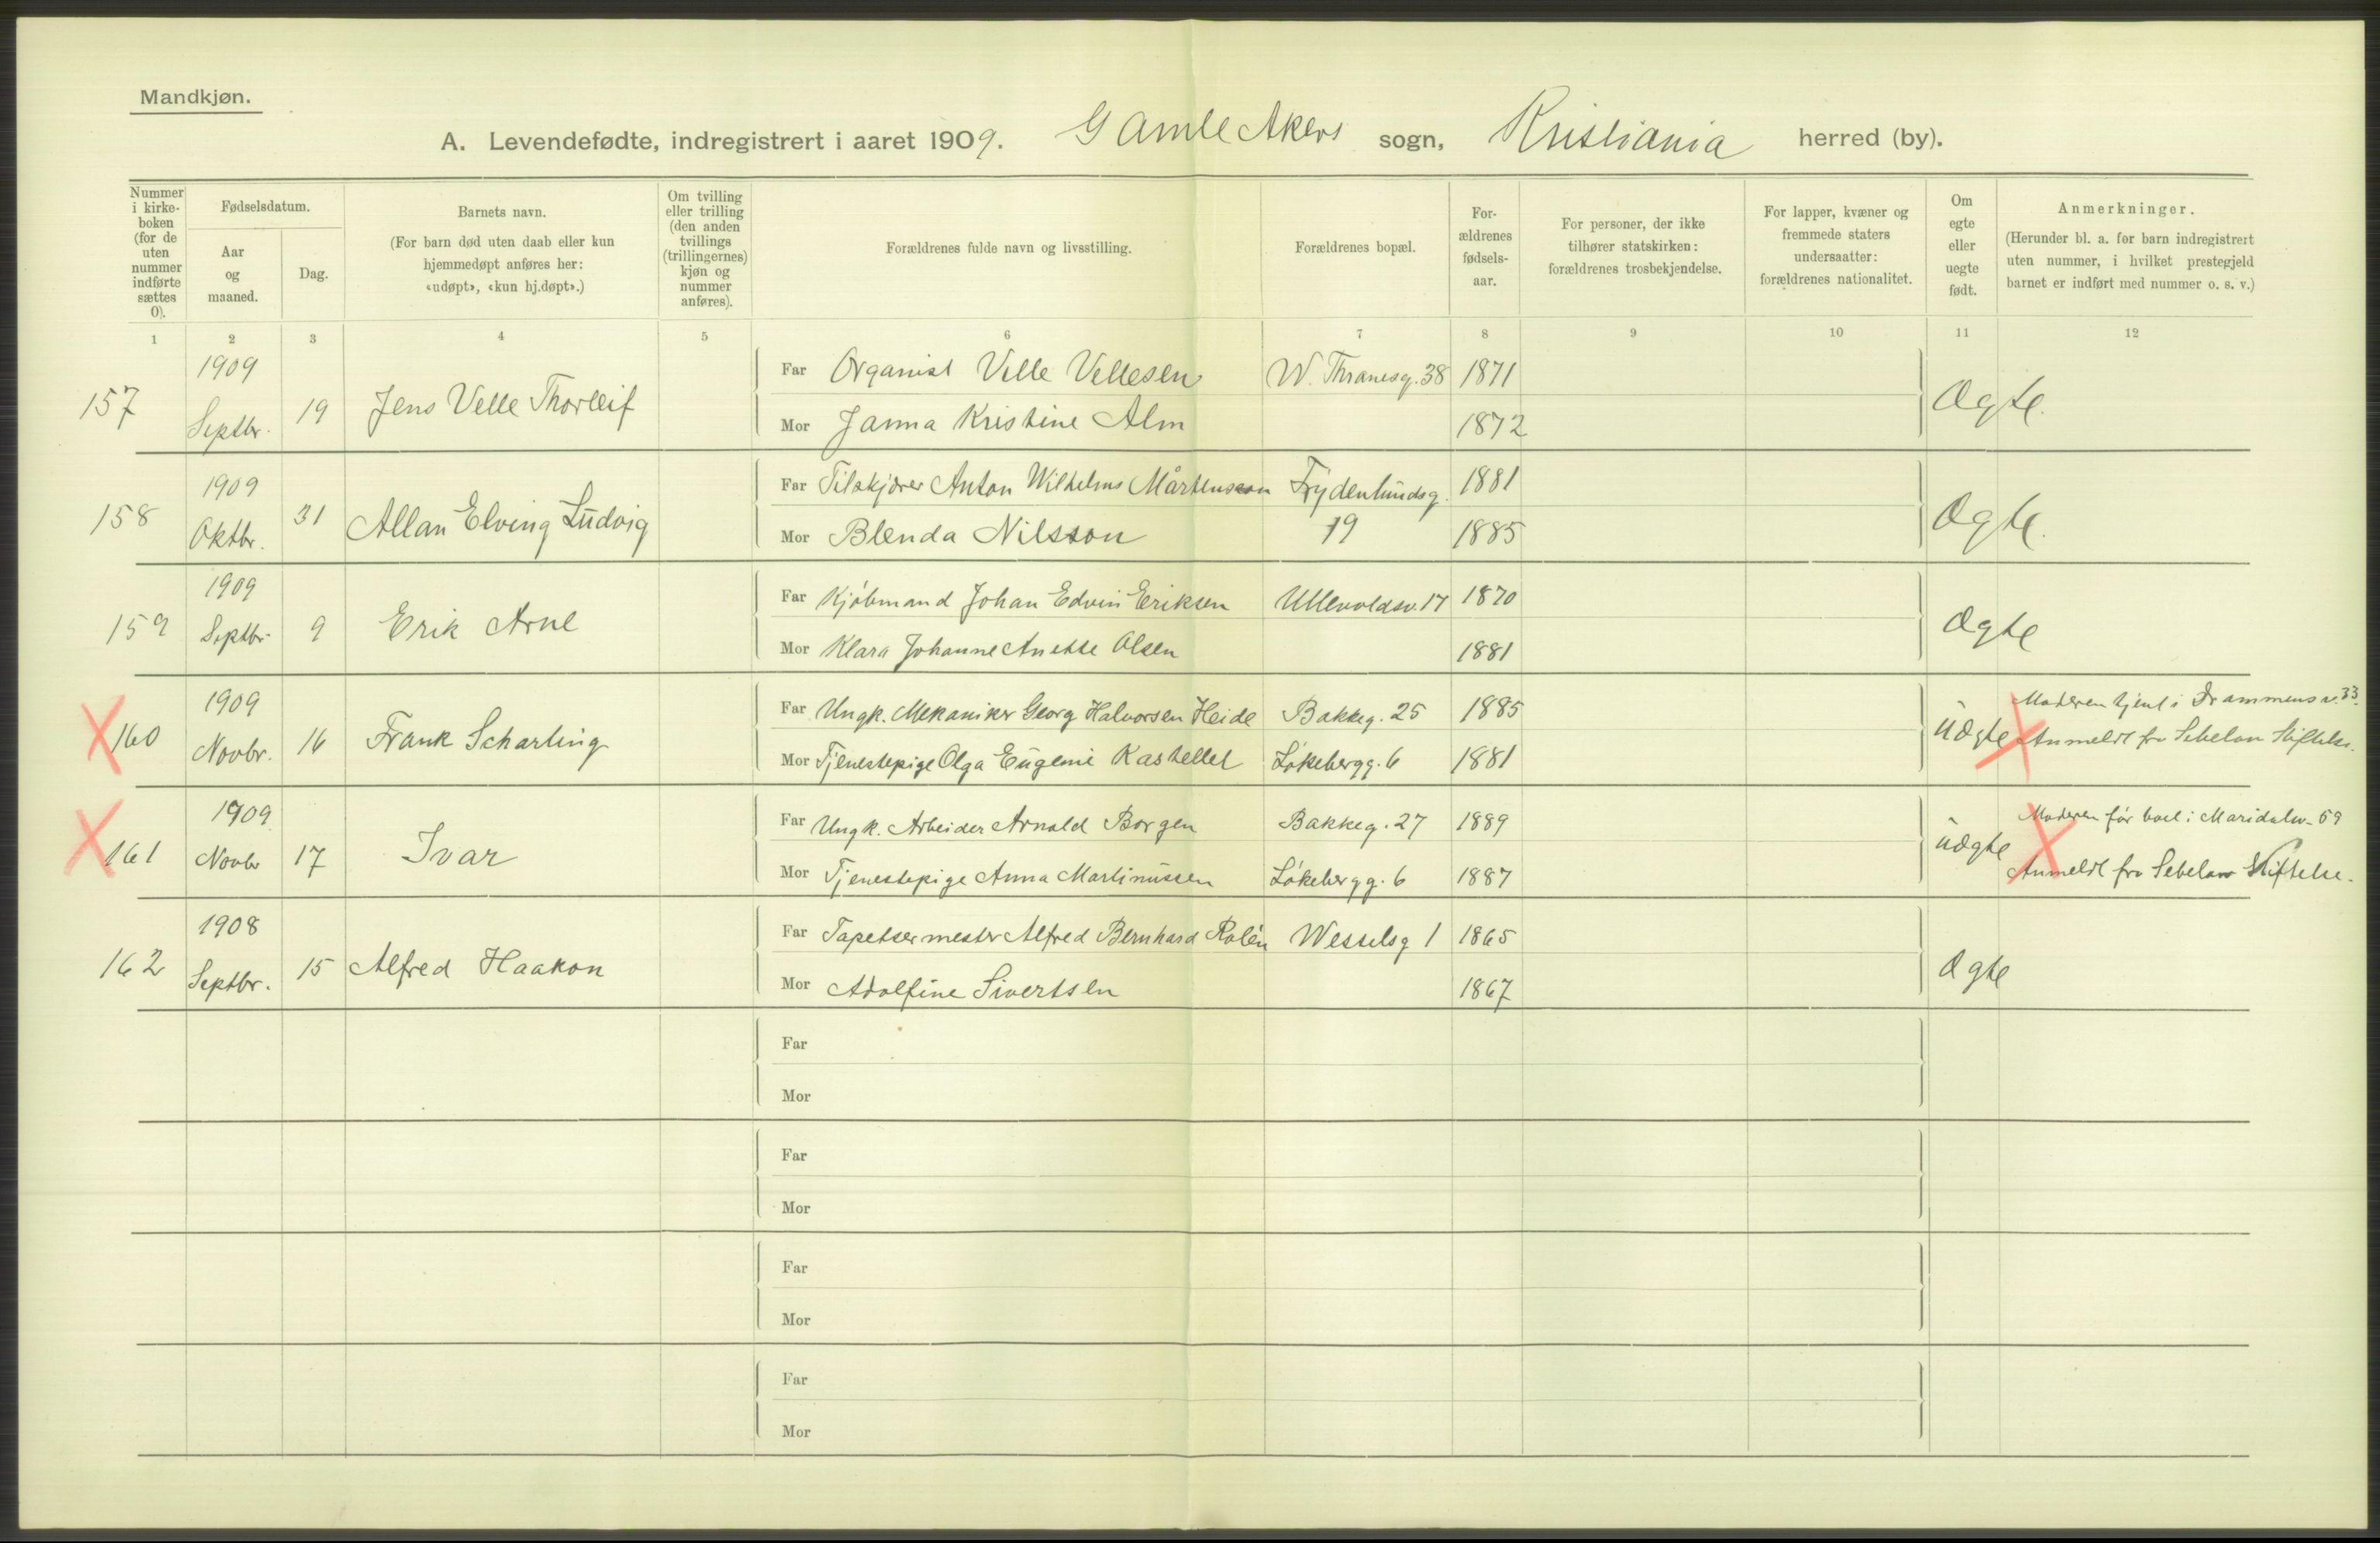 Mandkjøn.
A. Levendefødte, indregistrert i aaret 1909. Gamle Akers sogn, Kristiania herred (by).
Nummer i kirkeboken (for de uten nummer indførte sættes 0).
Fødselsdatum.
Aar og maaned.
Dag.
Barnets navn.
(For barn død uten daab eller kun hjemmedøpt anføres her: «udøpt», «kun hj.døpt».)
Om tvilling eller trilling (den anden tvillings (trillingernes) kjøn og nummer anføres).
Forældrenes fulde navn og livsstilling.
Forældrenes bopæl.
Forældrenes fødselsaar.
For personer, der ikke tilhører statskirken: forældrenes trosbekjendelse.
For lapper, kvæner og fremmede staters undersaatter: forældrenes nationalitet.
Om egte eller uegte født.
Anmerkninger.
(Herunder bl. a. for barn indregistrert uten nummer, i hvilket prestegjeld barnet er indført med nummer o. s. v.)
1 2 3 4 5 6 7 8 9 10 11 12
157 1909 Septbr. 19 Jens Velle Thorleif Far Organist Velle Vellesen W. Thranesg. 38 1871 Ægte.
Mor Janna Kristine Alm 1872
158 1909 Oktbr. 31 Allan Elving Ludvig Far Tilskjærer Anton Wilhelms Mårtensson Frydenlundsg. 1881 Ægte.
Mor Blenda Nilsson 19 1885
159 1909 Septbr. 9 Erik Arne Far Kjøbmand Johan Edvin Eriksen Ullevoldsv. 17 1870 Ægte
Mor Klara Johanne Anette Olsen 1881
160 1909 Novbr. 16 Frank Scharling Far Ungk. Mekaniker Georg Halvorsen Heide Bakkeg. 25 1885 Uægte Moderen tjent i Drammensv. 33.
Mor Tjenestepige Olga Eugenie Kastellet Løkebergg. 6 1881 Anmeldt fra Sebelow Stiftelse.
161 1909 Novbr 17 Ivar Far Ungk. Arbeider Arnold Borgen Bakkeg. 27 1889 uægte Moderen før boet i Maridalsv. 59
Mor Tjenestepige Anna Martinussen Løkebergg. 6 1887 Anmeldt fra Sebelow Stiftelse.
162 1908 Septbr. 15 Alfred Haakon Far Tapetsermester Alfred Bernhard Rolén Wesselsg 1 1865 Ægte
Mor Adolfine Sivertsen 1867
Far
Mor
Far
Mor
Far
Mor
Far
Mor